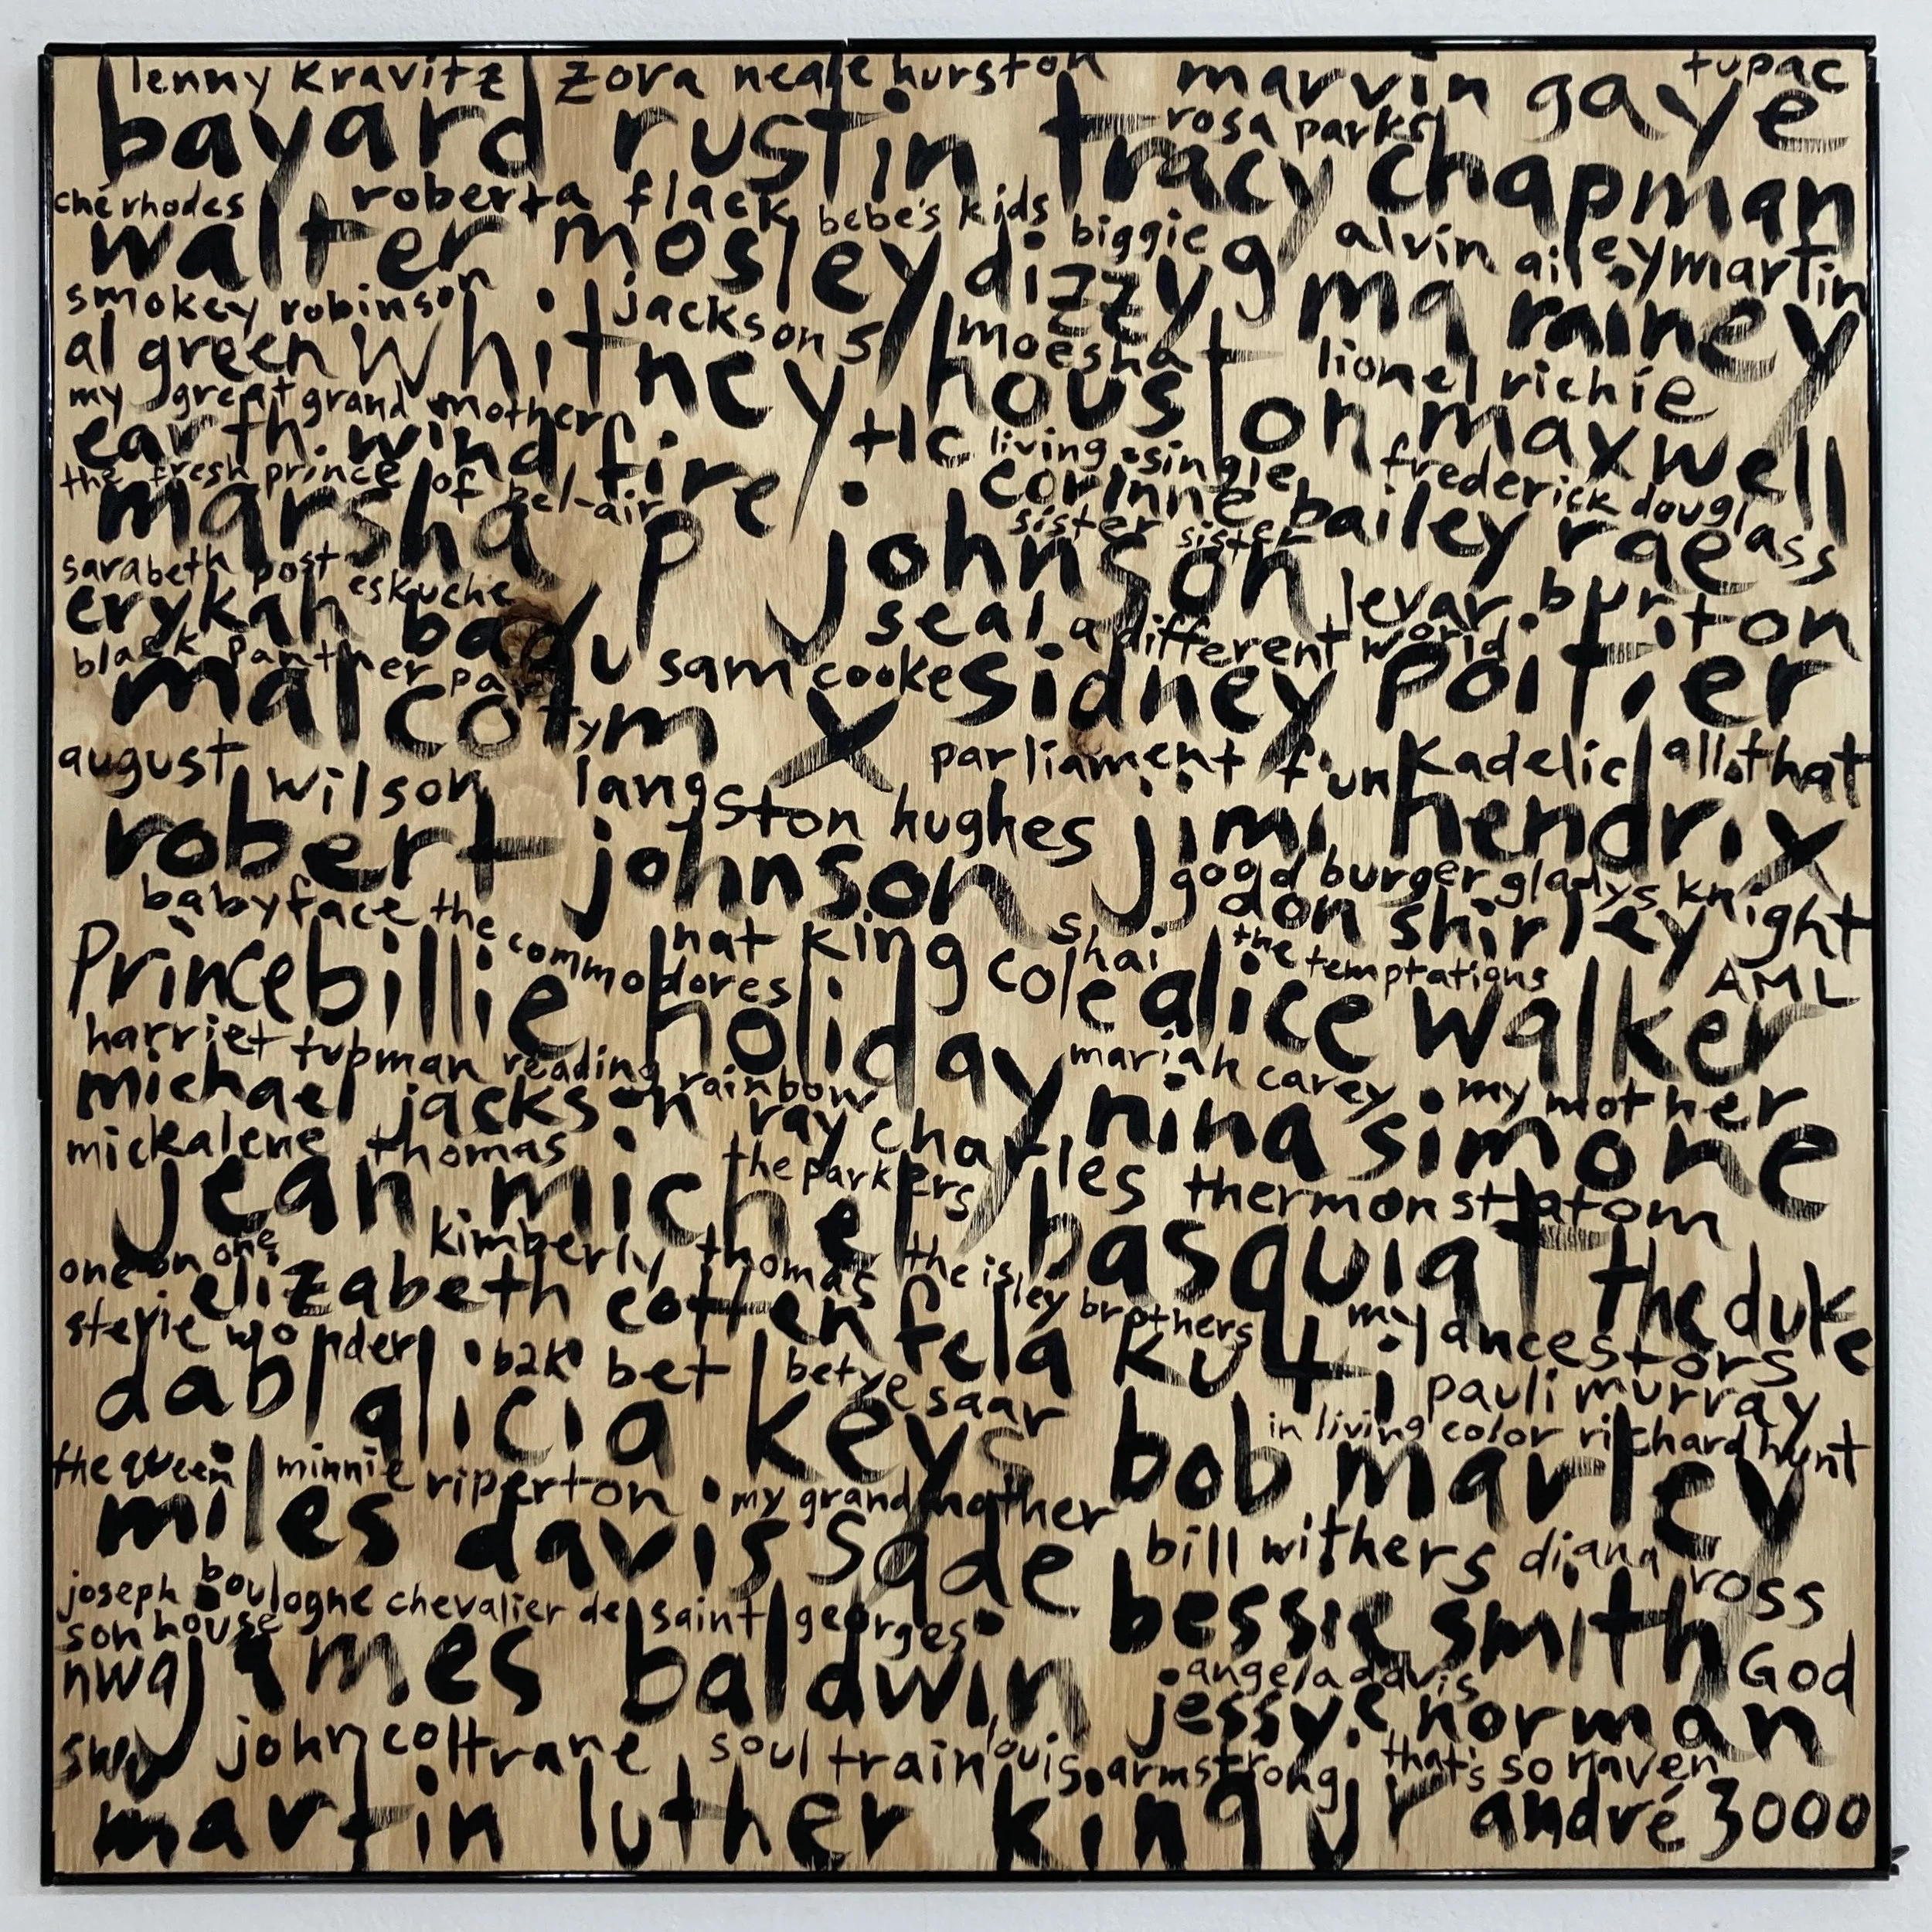 lenny kravitz zora neale hurston marvin gaye tupac
bayard rustin tracy chapman rosa parks
ché rhodes roberta flack bebe's kids biggie alvin ailey martin
walter mosley dizzy g ma rainey
smokey robinson jackson 5 moesha lionel richie
al green whitney houston maxwell
my great grand mother tlc living single frederick douglass
earth wind fire corinne bailey rae
the fresh prince of bel-air sister sister
marsha p johnson
sarabeth post eskuche seal levar burton
erykah badu sam cooke a different world
black panther party sidney poitier
malcolm x
august wilson langston hughes parliament funkadelic all that
robert johnson jimi hendrix
babyface the commodores nat king cole shai good burger gladys knight
don shirley the temptations AML
Prince billie holiday alice walker
harriet tubman reading rainbow mariah carey my mother
michael jackson ray charles nina simone
mickalene thomas the parkers thermon statom
jean michel basquiat
one on one kimberly thomas the isley brothers the duke
elizabeth cotten fela kuti my ancestors
stevie wonder b2k bet betye saar pauli murray
dabl alicia keys in living color richard hunt
the queen minnie riperton my grandmother bob marley
miles davis sade bill withers diana ross
joseph boulogne chevalier de saint georges bessie smith
son house God
nwa james baldwin angela davis
jessye norman
swv john coltrane soul train louis armstrong that's so raven
martin luther king jr andré 3000